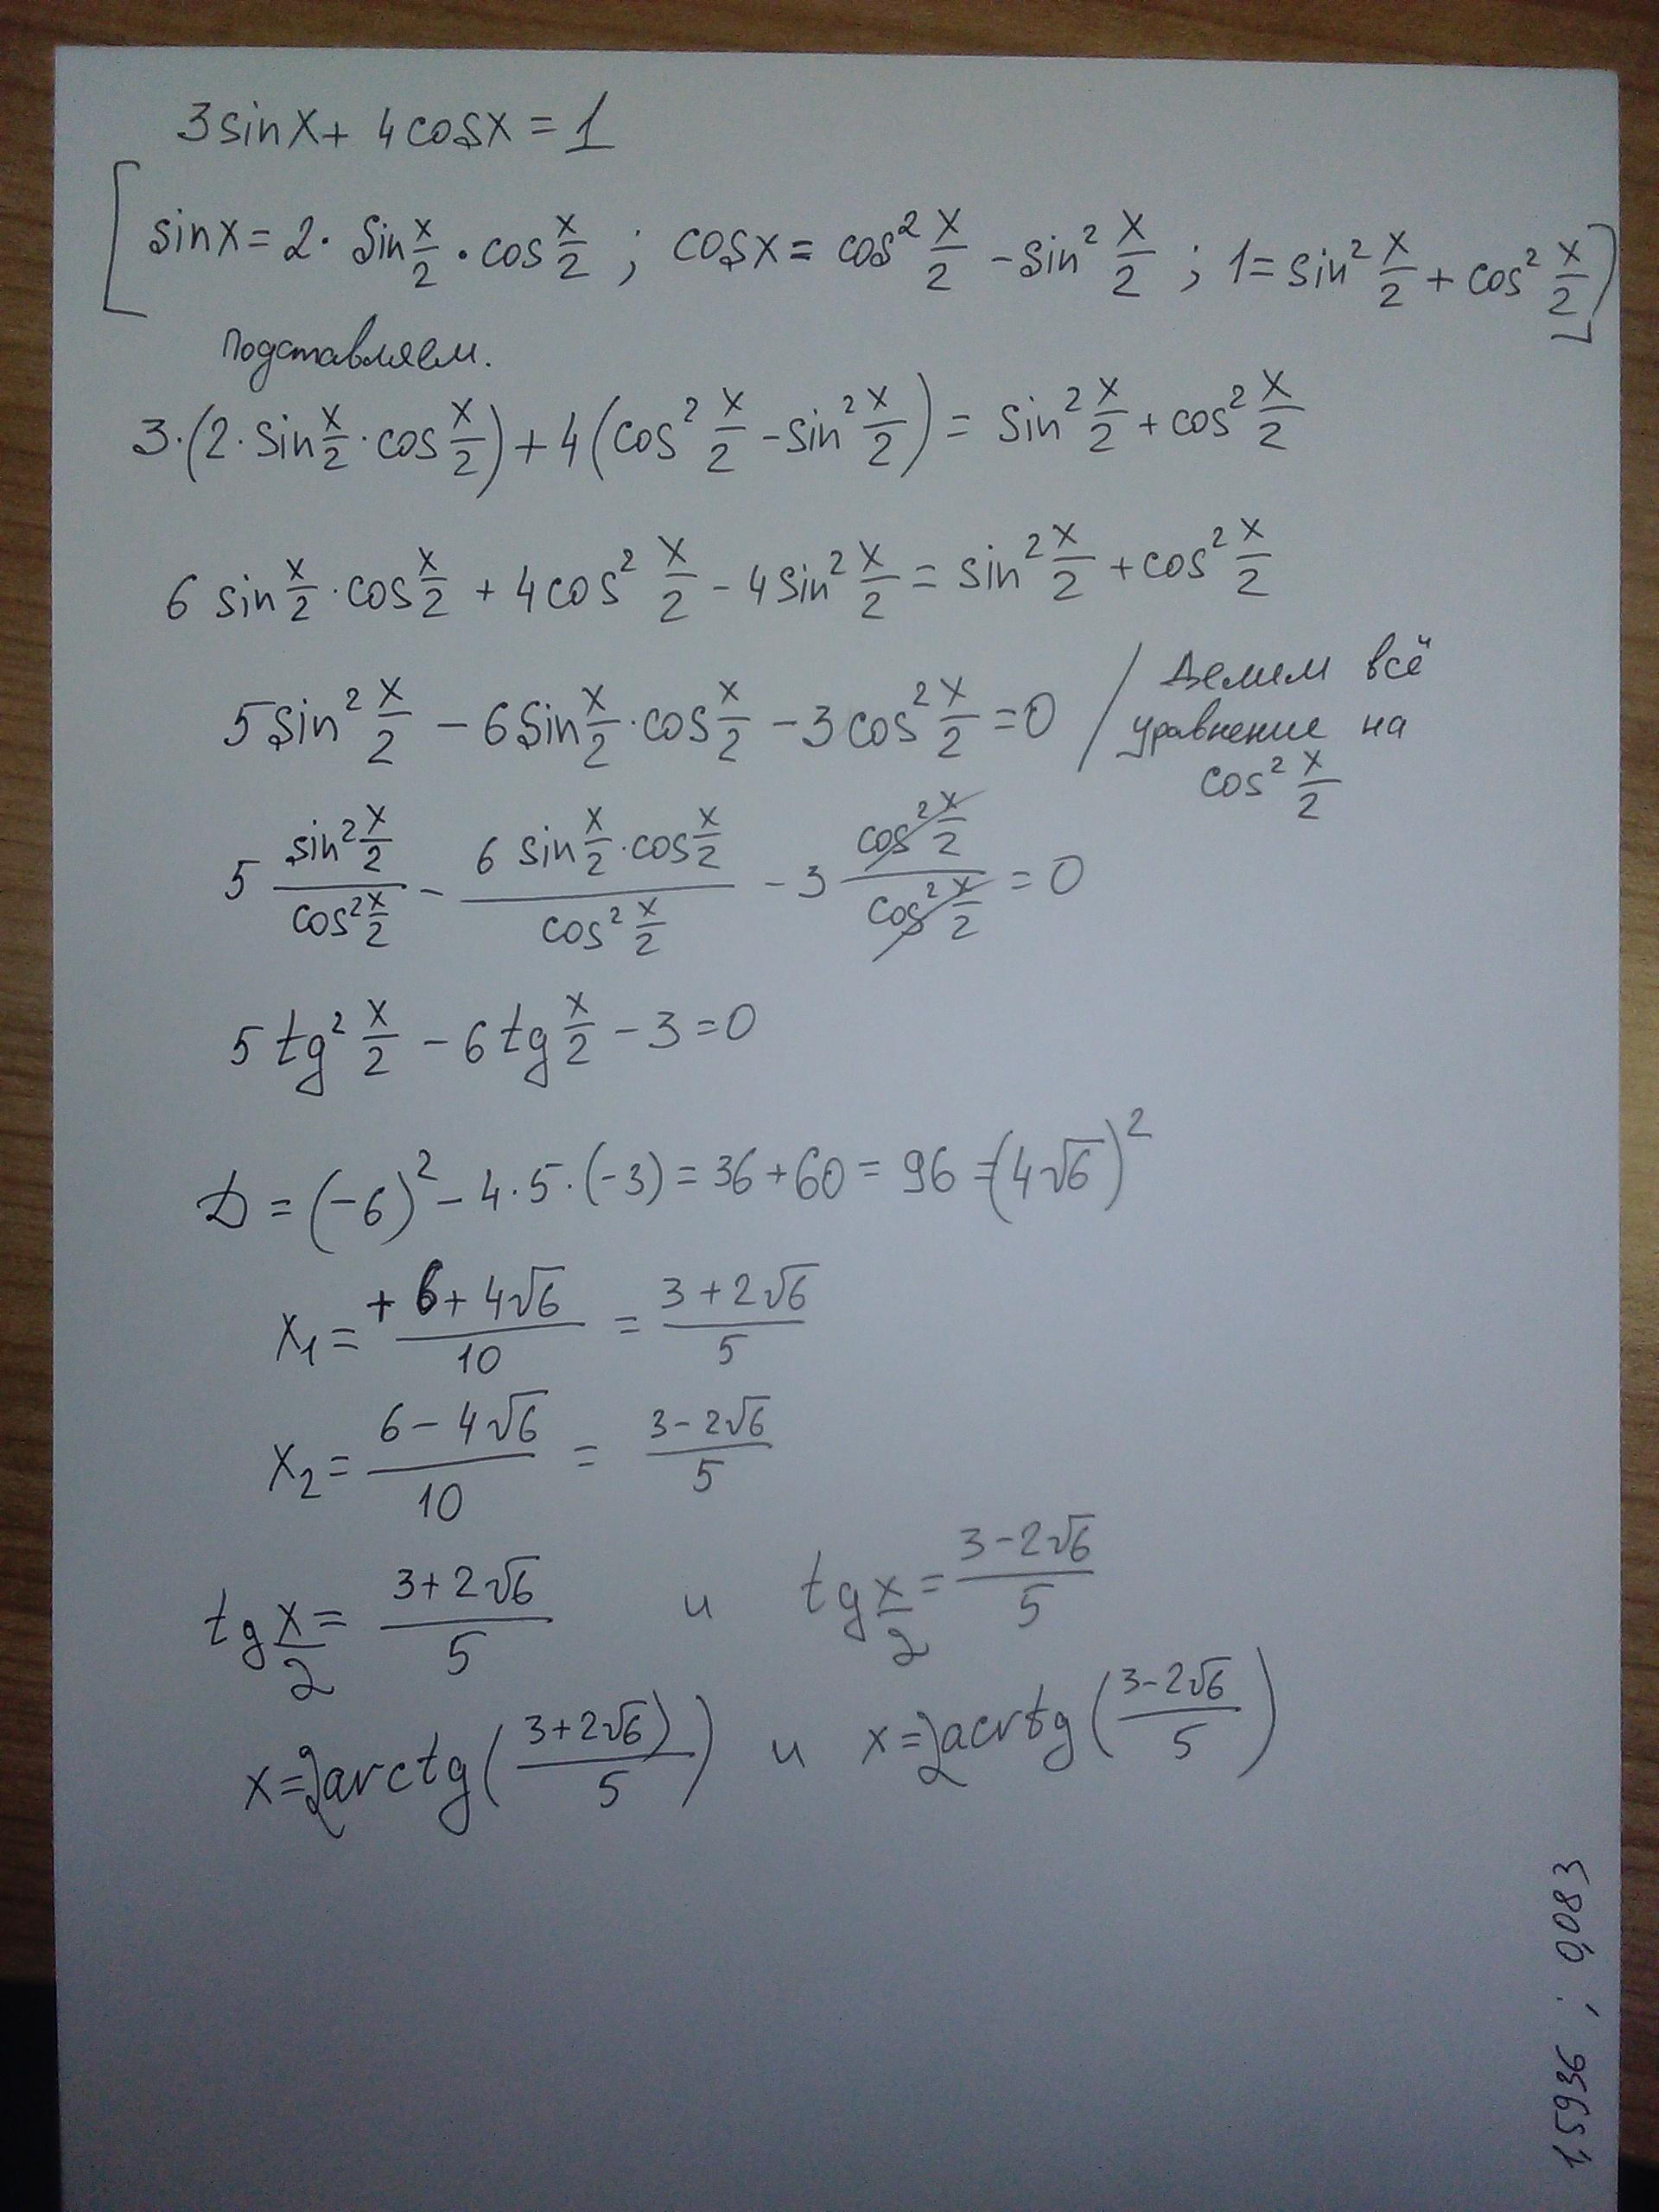 3sinx + 4cosx = 1
[sinx = 2·sin x/2 · cos x/2 ; cosx = cos² x/2 - sin² x/2 ; 1 = sin² x/2 + cos² x/2]
Подставляем.
3·(2·sin x/2 · cos x/2) + 4(cos² x/2 - sin² x/2) = sin² x/2 + cos² x/2
6 sin x/2 · cos x/2 + 4cos² x/2 - 4sin² x/2 = sin² x/2 + cos² x/2
5sin² x/2 - 6sin x/2 · cos x/2 - 3cos² x/2 = 0 / Делим всё
уравнение на
cos² x/2
5 sin² x/2 / cos² x/2 - 6 sin x/2 · cos x/2 / cos² x/2 - 3 cos² x/2 / cos² x/2 = 0
5 tg² x/2 - 6 tg x/2 - 3 = 0
D = (-6)² - 4·5·(-3) = 36 + 60 = 96 = (4√6)²
x₁ = +6 + 4√6 / 10 = 3 + 2√6 / 5
x₂ = 6 - 4√6 / 10 = 3 - 2√6 / 5
tg x/2 = 3 + 2√6 / 5 и tg x/2 = 3 - 2√6 / 5
x = 2arctg(3 + 2√6) / 5) и x = 2acrtg(3 - 2√6 / 5)
1,5936 ; 0,083